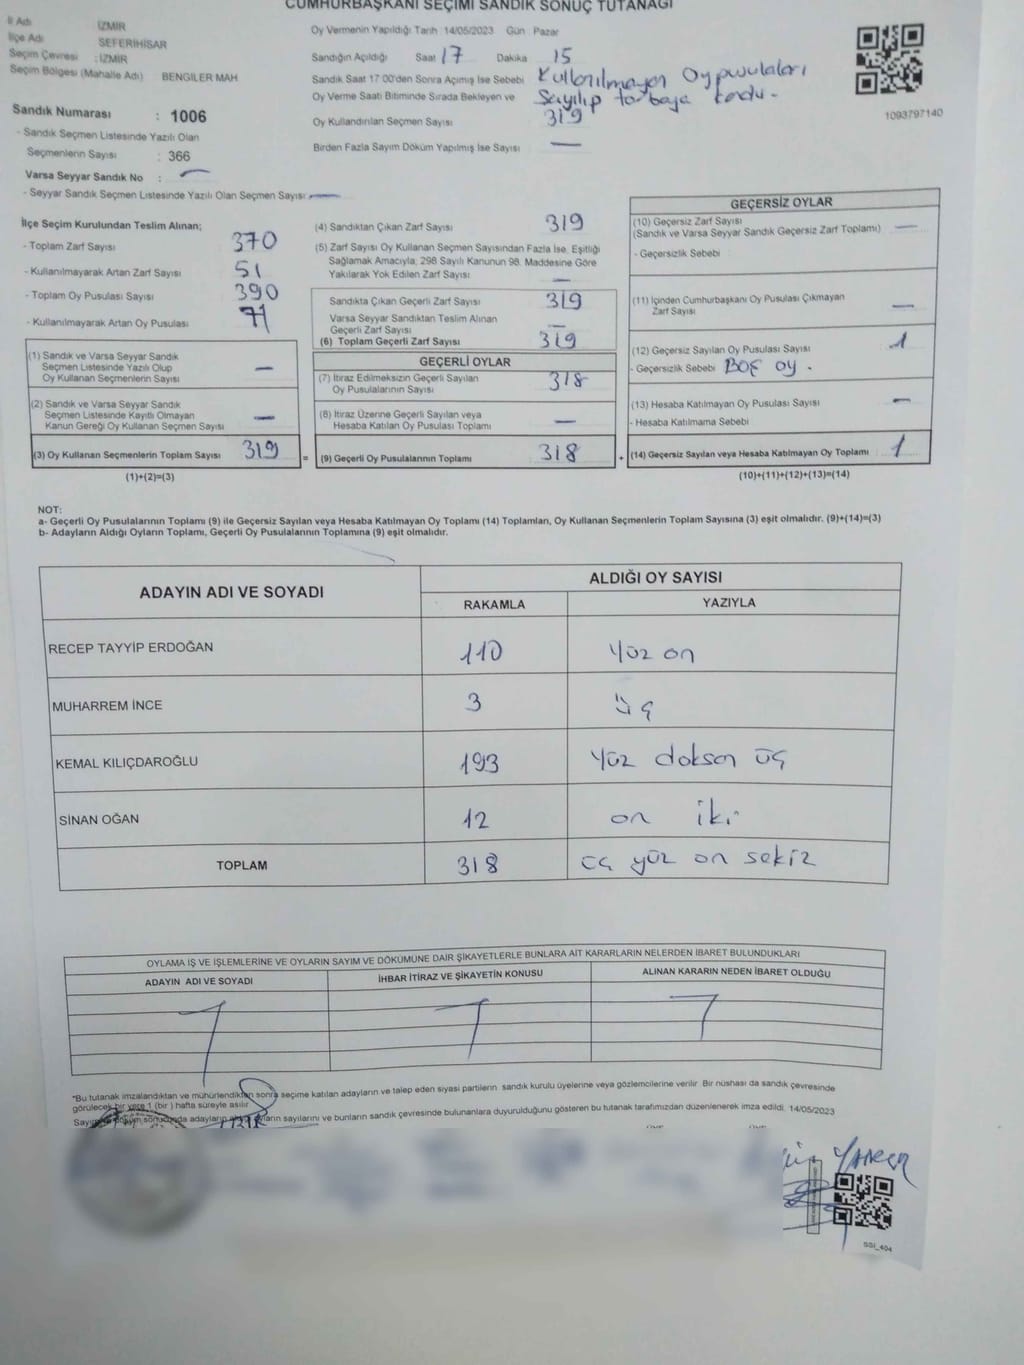 CUMHURBAŞKANI SEÇİMİ SANDIK SONUÇ TUTANAĞI
İl Adı İZMİR
İlçe Adı SEFERİHİSAR
Seçim Çevresi : İZMİR
Seçim Bölgesi (Mahalle Adı) BENGİLER MAH
Sandık Numarası : 1006
- Sandık Seçmen Listesinde Yazılı Olan
Seçmenlerin Sayısı : 366
Varsa Seyyar Sandık No : —
- Seyyar Sandık Seçmen Listesinde Yazılı Olan Seçmen Sayısı: —
Oy Vermenin Yapıldığı Tarih 14/05/2023 Gün Pazar
Sandığın Açıldığı Saat 17 Dakika 15
Sandık Saat 17:00'den Sonra Açımış İse Sebebi Kullanılmayan Oypusulaları
Oy Verme Saati Bitiminde Sırada Bekleyen ve Sayılıp torbaya kondu.
Oy Kullandırılan Seçmen Sayısı 319
Birden Fazla Sayım Döküm Yapılmış İse Sayısı —
1093797140
İlçe Seçim Kurulundan Teslim Alınan;
- Toplam Zarf Sayısı 370
- Kullanılmayarak Artan Zarf Sayısı 51
- Toplam Oy Pusulası Sayısı 390
- Kullanılmayarak Artan Oy Pusulası 71
(1) Sandık ve Varsa Seyyar Sandık
Seçmen Listesinde Yazılı Olup
Oy Kullanan Seçmenlerin Sayısı —
(2) Sandık ve Varsa Seyyar Sandık
Seçmen Listesinde Kayıtlı Olmayan
Kanun Gereği Oy Kullanan Seçmen Sayısı —
(3) Oy Kullanan Seçmenlerin Toplam Sayısı 319
(1)+(2)=(3)
(4) Sandıktan Çıkan Zarf Sayısı 319
(5) Zarf Sayısı Oy Kullanan Seçmen Sayısından Fazla İse, Eşitliği
Sağlamak Amacıyla; 298 Sayılı Kanunun 98. Maddesine Göre
Yakılarak Yok Edilen Zarf Sayısı: —
Sandıkta Çıkan Geçerli Zarf Sayısı 319
Varsa Seyyar Sandıktan Teslim Alınan
Geçerli Zarf Sayısı —
(6) Toplam Geçerli Zarf Sayısı 319
GEÇERLİ OYLAR
(7) İtiraz Edilmeksizin Geçerli Sayılan
Oy Pusulalarının Sayısı 318
(8) İtiraz Üzerine Geçerli Sayılan veya
Hesaba Katılan Oy Pusulası Toplamı —
= (9) Geçerli Oy Pusulalarının Toplamı 318 +
GEÇERSİZ OYLAR
(10) Geçersiz Zarf Sayısı
(Sandık ve Varsa Seyyar Sandık Geçersiz Zarf Toplamı) —
- Geçersizlik Sebebi
(11) İçinden Cumhurbaşkanı Oy Pusulası Çıkmayan
Zarf Sayısı —
(12) Geçersiz Sayılan Oy Pusulası Sayısı 1
- Geçersizlik Sebebi BOŞ oy .
(13) Hesaba Katılmayan Oy Pusulası Sayısı —
- Hesaba Katılmama Sebebi
(14) Geçersiz Sayılan veya Hesaba Katılmayan Oy Toplamı 1
(10)+(11)+(12)+(13)=(14)
NOT:
a- Geçerli Oy Pusulalarının Toplamı (9) ile Geçersiz Sayılan veya Hesaba Katılmayan Oy Toplamı (14) Toplamları, Oy Kullanan Seçmenlerin Toplam Sayısına (3) eşit olmalıdır. (9)+(14)=(3)
b- Adayların Aldığı Oyların Toplamı, Geçerli Oy Pusulalarının Toplamına (9) eşit olmalıdır.
ADAYIN ADI VE SOYADI
ALDIĞI OY SAYISI
RAKAMLA YAZIYLA
RECEP TAYYİP ERDOĞAN 110 Yüz on
MUHARREM İNCE 3 üç
KEMAL KILIÇDAROĞLU 193 Yüz doksan üç
SİNAN OĞAN 12 on iki
TOPLAM 318 üç yüz on sekiz
OYLAMA İŞ VE İŞLEMLERİNE VE OYLARIN SAYIM VE DÖKÜMÜNE DAİR ŞİKAYETLERLE BUNLARA AİT KARARLARIN NELERDEN İBARET BULUNDUKLARI
ADAYIN ADI VE SOYADI İHBAR İTİRAZ VE ŞİKAYETİN KONUSU ALINAN KARARIN NEDEN İBARET OLDUĞU
*Bu tutanak imzalandıktan ve mühürlendikten sonra seçime katılan adayların ve talep eden siyasi partilerin sandık kurulu üyelerine veya gözlemcilerine verilir. Bir nüshası da sandık çevresinde
görülecek bir yere 1 (bir ) hafta süreyle asılır.
Sayım ve döküm sonucunda adayların oyların sayılarını ve bunların sandık çevresinde bulunanlara duyurulduğunu gösteren bu tutanak tarafımızdan düzenlenerek imza edildi. 14/05/2023
SSI_404